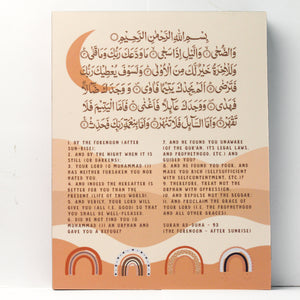 بِسْمِ اللهِ الرَّحْمٰنِ الرَّحِيْمِ
وَالضُّحٰى وَالَّيْلِ اِذَا سَجٰى مَا وَدَّعَكَ رَبُّكَ وَمَا قَلٰى
وَلَلْاٰخِرَةُ خَيْرٌ لَّكَ مِنَ الْاُوْلٰى وَلَسَوْفَ يُعْطِيْكَ رَبُّكَ
فَتَرْضٰى اَلَمْ يَجِدْكَ يَتِيْمًا فَاٰوٰى وَوَجَدَكَ ضَآلًّا
فَهَدٰى وَوَجَدَكَ عَآئِلًا فَاَغْنٰى فَاَمَّا الْيَتِيْمَ فَلَا
تَقْهَرْ وَاَمَّا السَّآئِلَ فَلَا تَنْهَرْ وَاَمَّا بِنِعْمَةِ رَبِّكَ فَحَدِّثْ
1. BY THE FORENOON (AFTER
SUN-RISE);
2. AND BY THE NIGHT WHEN IT IS
STILL (OR DARKENS);
3. YOUR LORD (O MUHAMMAD (ﷺ))
HAS NEITHER FORSAKEN YOU NOR
HATED YOU.
4. AND INDEED THE HEREAFTER IS
BETTER FOR YOU THAN THE
PRESENT (LIFE OF THIS WORLD).
5. AND VERILY, YOUR LORD WILL
GIVE YOU (ALL I.E. GOOD) SO THAT
YOU SHALL BE WELL-PLEASED.
6. DID HE NOT FIND YOU (O
MUHAMMAD (ﷺ)) AN ORPHAN AND
GAVE YOU A REFUGE?
7. AND HE FOUND YOU UNAWARE
(OF THE QUR'AN, ITS LEGAL LAWS,
AND PROPHETHOOD, ETC.) AND
GUIDED YOU?
8. AND HE FOUND YOU POOR, AND
MADE YOU RICH (SELFSUFFICIENT
WITH SELFCONTENTMENT, ETC.)?
9. THEREFORE, TREAT NOT THE
ORPHAN WITH OPPRESSION,
10. AND REPULSE NOT THE BEGGAR;
11. AND PROCLAIM THE GRACE OF
YOUR LORD (I.E. THE PROPHETHOOD
AND ALL OTHER GRACES).
SURAH AD-DUHA - 93
(THE FORENOON - AFTER SUNRISE)